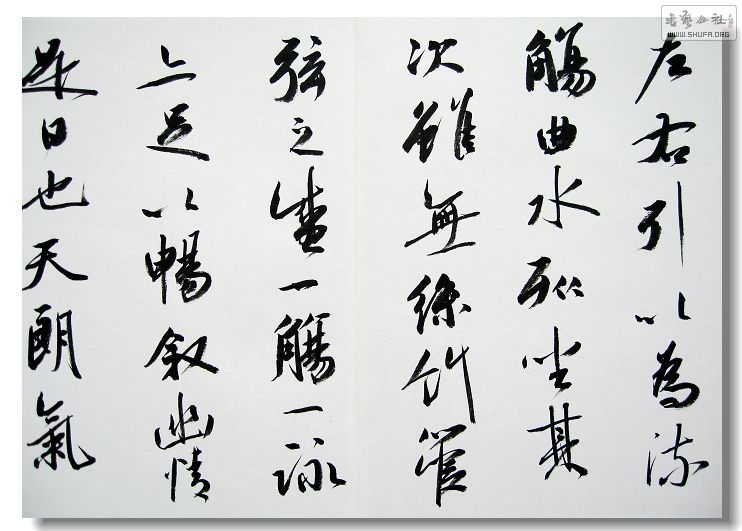 左右引以為流
觴曲水列坐其
次雖無絲竹管
弦之盛一觴一詠
亦足以暢敘幽情
是日也天朗氣
书艺公社
WWW.SHUFA.ORG